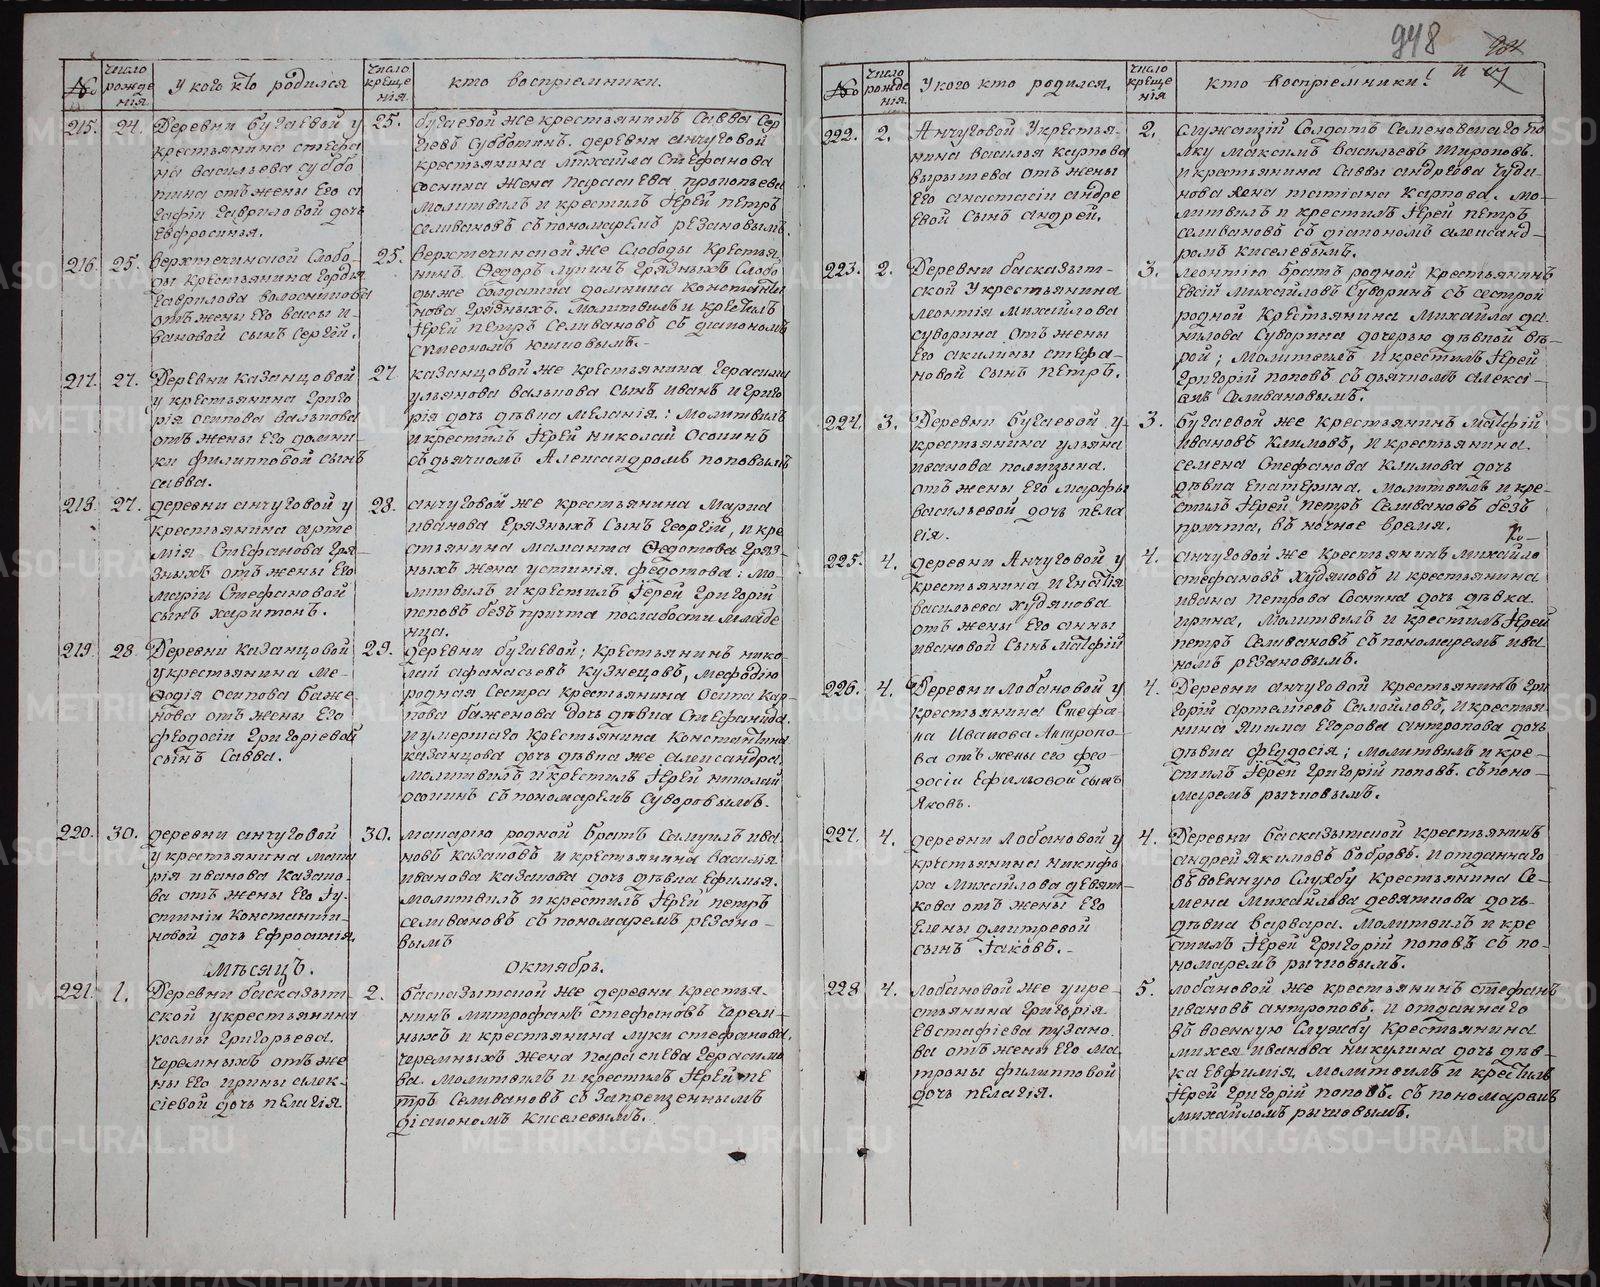 948
№
число рождения
У кого кто родился
число крещения
кто восприемники.
215.
24.
Деревни бугаевой у
крестьянина стефа
на васильева суббо
тина отъ жены Его а
гафiи гавриловой дочь
Евфросинья.
25.
бугаевой же крестьянинъ Савва Сер
гiевъ Субботинъ. деревни анчуговой
крестьянина михайла Стефанова
соснина жена параскева прокопьева
молитвилъ и крестилъ Iерей петръ
селивановъ съ пономаремъ резановымъ.
216.
25.
верхтечинской Слобо-
ды крестьянина гордiя
гаврилова волосникова
отъ жены Его вассы и-
вановой сынъ Сергей.
25.
верхтечинской же Слободы Крестья-
нинъ Ѳедоръ лупинъ грязныхъ Слобо
ды же Солдатка домника константи
нова грязныхъ. молитвилъ и крестилъ
Iерей петръ Селивановъ съ дiакономъ
симеономъ юшковымъ.-
217.
27.
Деревни казанцовой
у крестьянина григо
рiя осипова валькова
отъ жены Его домни-
ки филипповой сынъ
савва.
27
казанцовой же крестьянина герасима
ульянова валькова сынъ иванъ и григо
рiя дочь дѣвка меланiя.: молитвилъ
и крестилъ Iерей николай Осокинъ
съ дьячкомъ Александромъ поповымъ
218.
27.
деревни анчуговой у
крестьянина арте
мiя Стефанова гря-
зныхъ отъ жены Его
марiи Стефановой
сынъ харитонъ.
28.
анчуговой же крестьянина Марка
иванова грязныхъ Сынъ георгiй, и кре
стьянина маманта Ѳедотова гряз-
ныхъ жена устинiя. федотова: мо-
литвилъ и крестилъ iерей григорiй
поповъ безъ причта послабости младе
нца.
219.
28.
Деревни казанцовой
у крестьянина ме-
ѳодiя осипова баже-
нова отъ жены Его
феодосiи григорiевой
сынъ Савва.
29.
деревни бугаевой; крестьянинъ нико-
лай афанасьевъ кузнецовъ, мефодiю
родная сестра крестьянина Осипа кар
пова баженова дочь дѣвка Стефанида.
и умершаго крестьянина константина
казанцова дочь дѣвка же александра.
молитвилъ и крестилъ Iерей николай
осокинъ съ пономаремъ суворовымъ.
220.
30.
деревни анчуговой
у крестьянина мака
рiя иванова казако-
ва отъ жены Его Iу-
стинiи Константи-
новой дочь ефросинiя.
30.
макарiю родной братъ Самуилъ ива-
новъ казаковъ и крестьянина василiя
иванова казакова дочь дѣвка ефимья.
молитвилъ и крестилъ Iерей петръ
селивановъ съ пономаремъ резано-
вымъ
Мѣсяцъ.
октябрь.
221.
1.
Деревни басказыкт-
ской у крестьянина
космы григорьева.
черемныхъ отъ же-
ны Его ирины алек-
сiевой дочь пелагiя
2.
басказыкской же деревни крестья-
нинъ митрофанъ стефановъ черем-
ныхъ и крестьянина луки стефанова
черемныхъ жена параскева герасимо
ва. молитвилъ и крестилъ Iерей пе
тръ Селивановъ съ запрещеннымъ
дiакономъ киселевымъ.
№
число рожде нiя.
У кого кто родился.
число креще нiя
кто восприемники!
222.
2.
Анчуговой У крестья-
нина василья карпова
вырышева отъ жены
Его анастасiи андре
евой Сынъ андрей.
2.
служащiй Солдатъ семеновскаго по
лку максимъ васильевъ широковъ.
и крестьянина Саввы андреева чуди-
нова жена татiана карпова. мо-
литвилъ и крестилъ Iерей петръ
селивановъ съ дiакономъ александ-
ромъ киселевымъ.
223.
2.
Деревни басказыкт-
ской У крестьянина
леонтiя михайлова
суворина отъ жены
Его акилины стефа-
новой сынъ петръ.
3.
леонтiю братъ родной крестьянинъ
Евсiй михайловъ суворинъ съ сестрой
родной крестьянина михайла да-
нилова суворина дочерью дѣвкой вѣ-
рой; молитвилъ и крестилъ Iерей
григорiй поповъ съ дьячкомъ алексi-
емъ Селивановымъ.
224.
3.
Деревни бугаевой у
крестьянина ульяна
иванова полицына.
отъ жены Его марфы
васильевой дочь пела
гiя.
3.
бугаевой же крестьянинъ матфiй
ивановъ климовъ, и крестьянина.
семена Стефанова климова дочь
дѣвка екатерина. молитвилъ и кре-
стилъ Iерей петръ Селивановъ безъ
причта, въ ночное время.
225.
4.
деревни Анчуговой у
крестьянина игнатiя
васильева худякова
отъ жены Его анны
ивановой Сынъ матфiй
4.
анчуговой же крестьянинъ михайло
стефановъ худяковъ и крестьянина
ивана петрова соснина дочь дѣвка
ирина, молитвилъ и крестилъ Iерей
петръ Селивановъ съ пономаремъ ива
номъ резановымъ.
226.
4.
Деревни лобановой у
крестьянина Стефа-
на Иванова Антропо-
ва отъ жены его фео-
досiи Ефимовой сынъ
Яковъ.
4.
Деревни анчуговой крестьянинъ гри
горiй артемiевъ Самойловъ, и крестья-
нина Якима Егорова антропова дочь
дѣвка феудосiя; молитвилъ и кре-
стилъ Iерей григорiй поповъ. съ поно-
маремъ рычковымъ.
227.
4.
деревни лобановой у
крестьянина никифо
ра михайлова девят-
кова отъ жены Его
Елены дмитревой
сынъ Iаковъ.-
4.
Деревни басказыкской крестьянинъ
андрей якимовъ бобровъ. и отданнаго
въ военную службу крестьянина Се-
мена михайлова девяткова дочь
дѣвка варвара. молитвилъ и кре
стилъ Iерей григорiй поповъ съ по-
номаремъ рычковымъ.
228
4.
лобановой же у кре-
стьянина григорiя
Евстафiева пузано
ва отъ жены Его ма
троны филипповой
дочь пелагiя.
5.
лобановой же крестьянинъ стефанъ
ивановъ антроповъ. и отданнаго
въ военную службу крестьянина
михея иванова никулина дочь дѣв-
ка Евфимiя. молитвилъ и крестилъ
Iерей григорiй поповъ. съ пономаремъ
михайломъ рычковымъ.
METRIKI.GASO-URAL.RU